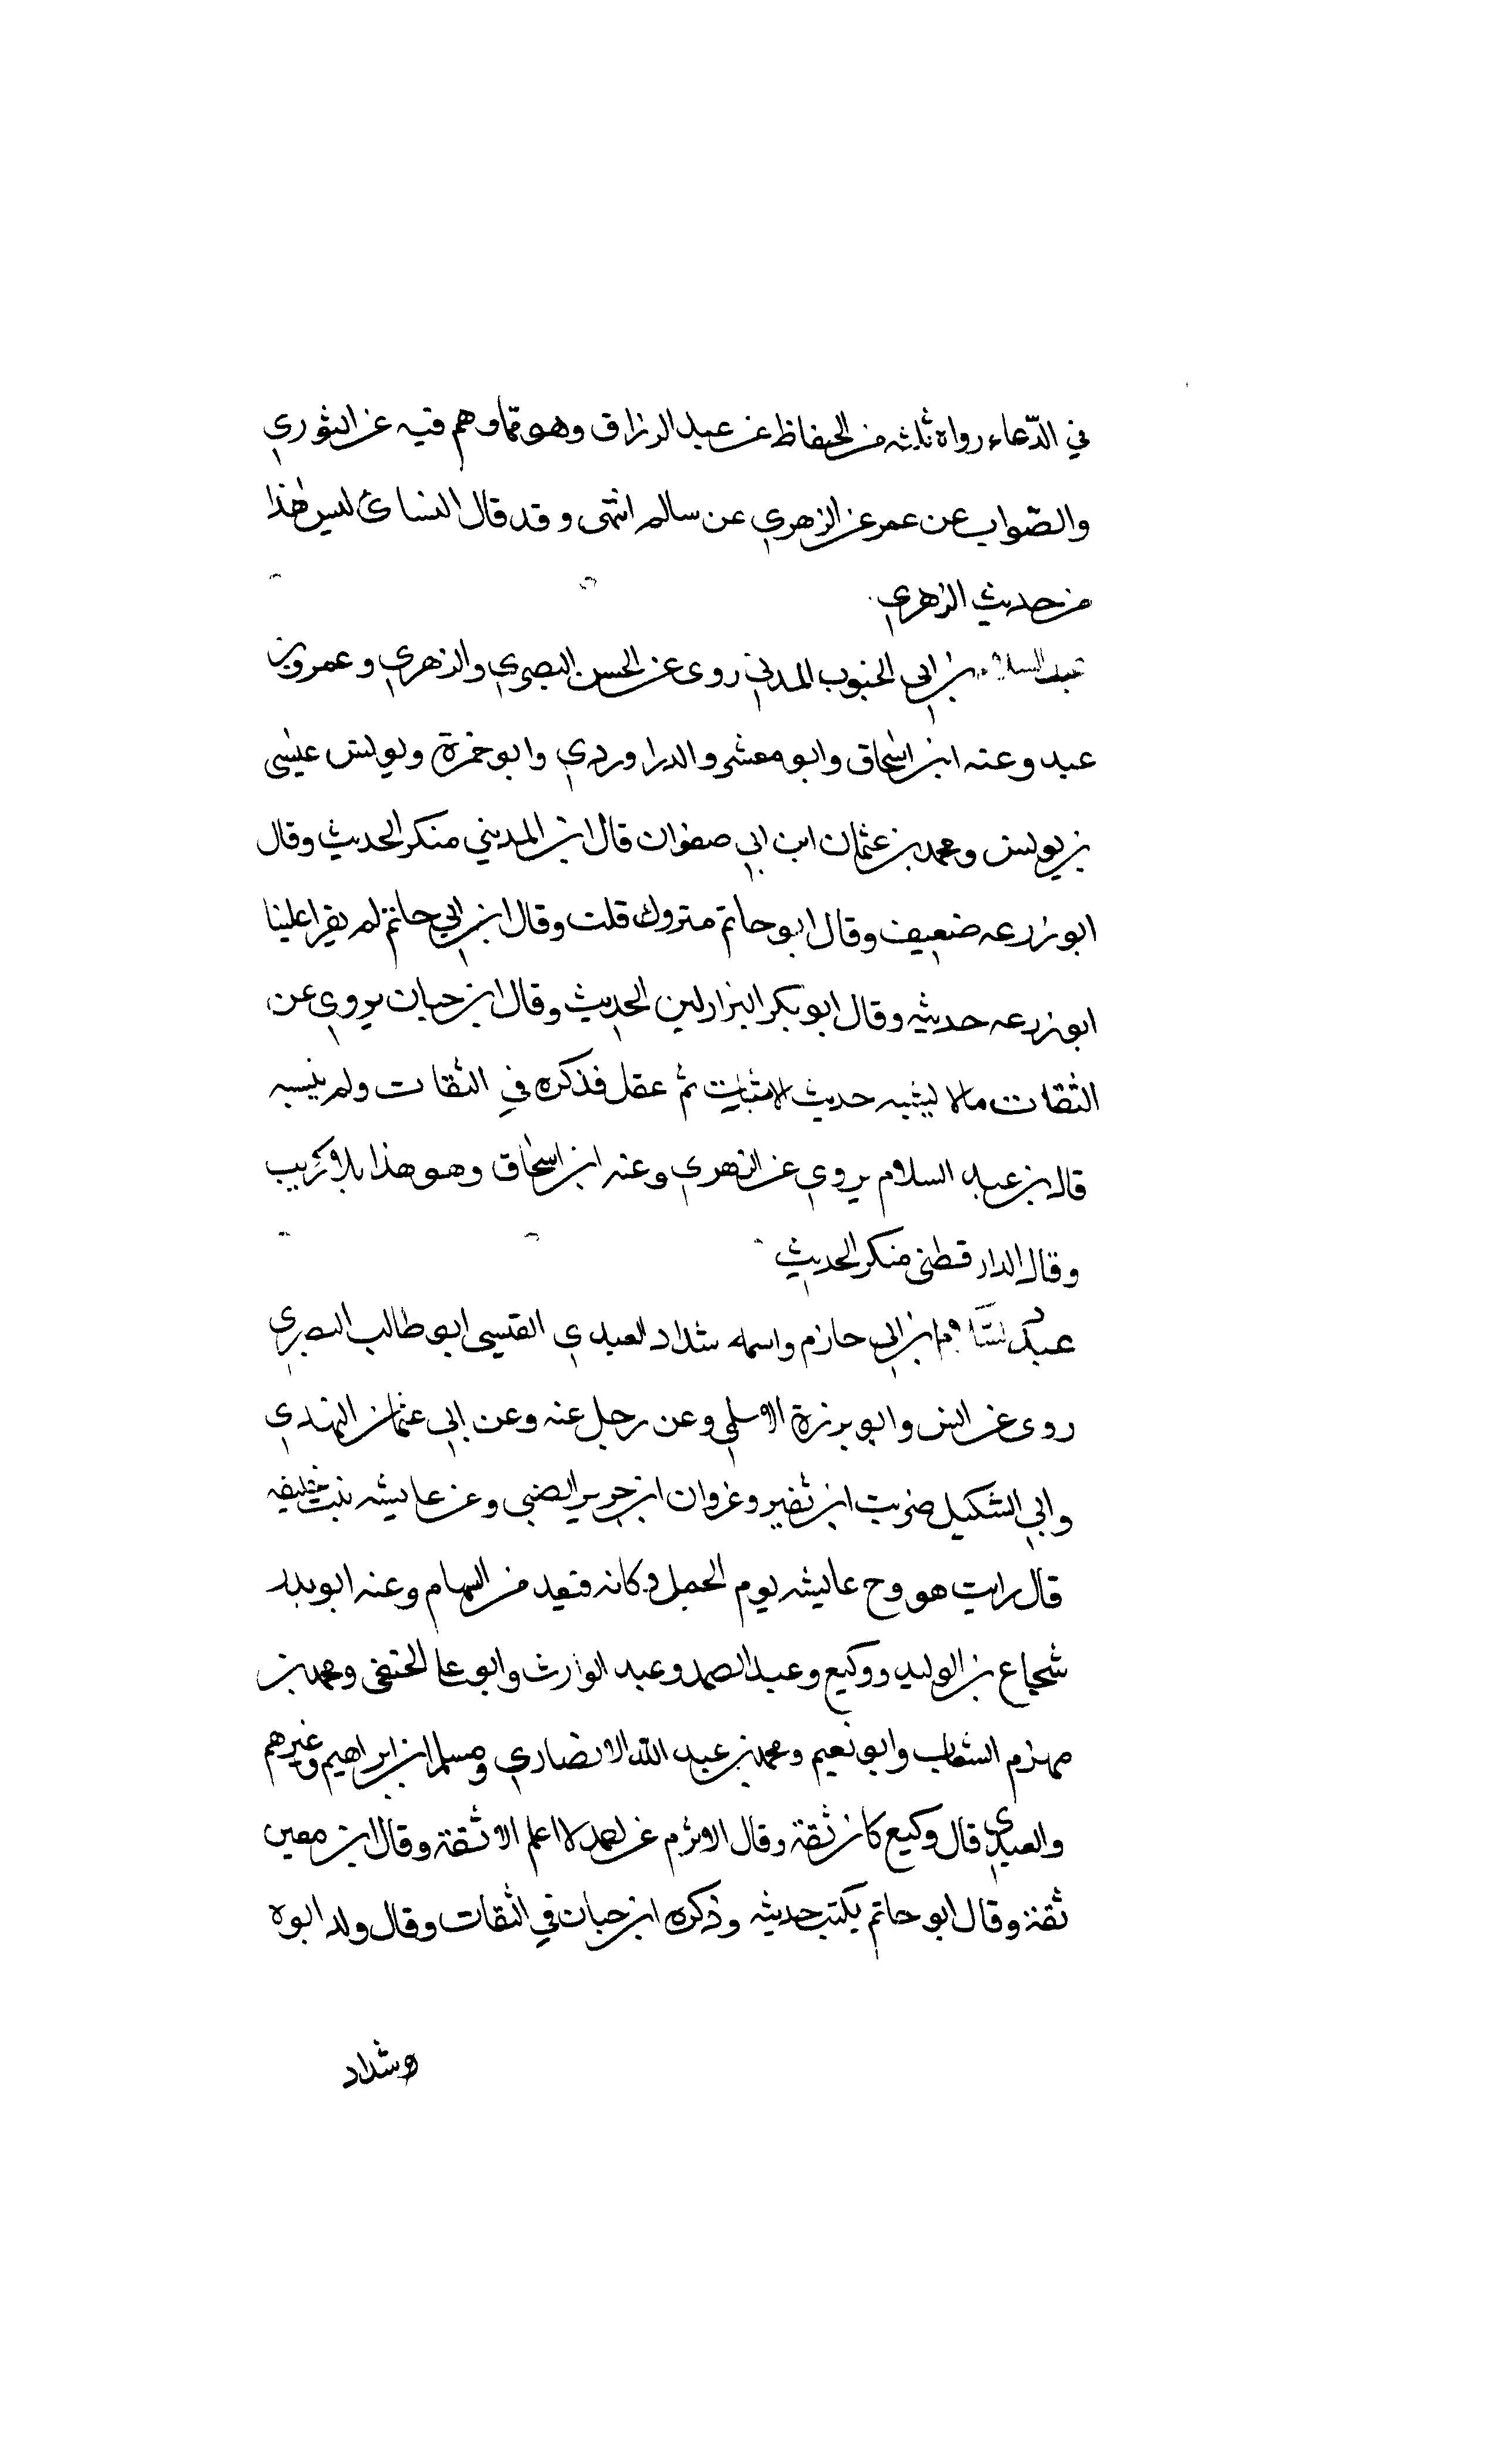 في الدّعاء رواه ثلثه من الحفاظ عن عبد الرزاق وهو ممّا وهم فيه عن الثوري
والصّواب عن عمر عن الزهري عن سالم انتهى وقد قال النسائ ليس هذا
من حديث الزهري
عبد السلام بن ابي الجنوب المدني روى عن الحسن البصري والزهري وعمرو بن
عبيد وعنه ابن اسحاق وابو معشر والدراوردي وابو ضمرة ويونس عيسى
بن يونس ومحمد بن عثمان ابن ابي صفوان قال ابن المديني منكر الحديث وقال
ابو زرعه ضعيف وقال ابو حاتم متروك قلت وقال ابن ابي حاتم لم يقرا علينا
ابو زرعه حديثه وقال ابو بكر البزار لين الحديث وقال ابن حبان يروي عن
الثقات مالا يشبه حديث الاثبات ثم غفل فذكره في الثقات ولم ينسبه
قال بن عبد السلام يروي عن الزهري وعنه ابن اسحاق وهو هذا بلا ريب
وقال الدار قطنى منكر الحديث
عبد السّلام ابن ابي حازم واسمه شداد العبدي القيسي ابو طالب البصري
روى عن انس وابو برزة الاسلمي وعن رجل عنه وعن ابي عثمان النهدي
وابي السكيل ضريب ابن نفير وغزوان ابن جرير الضبى وعن عايشه بنت خليفه
قال رايت هودج عايشه يوم الجمل وكانه قنفد من السهام وعنه ابو بدر
شجاع بن الوليد ووكيع وعبد الصمد وعبد الوارث وابو عا الحنفى ومحمد بن
مهزم الشعاب وابو نعيم ومحمد بن عبد الله الانصاري ومسلم ابن ابراهيم وغيرهم
والعبدي قال وكيع كان ثقة وقال الاثرم عن احمد لا اعلم الا ثقة وقال ابن معين
ثقة وقال ابو حاتم يكتب حديثه وذكره ابن حبان في الثقات وقال ولد ابوه
وشداد